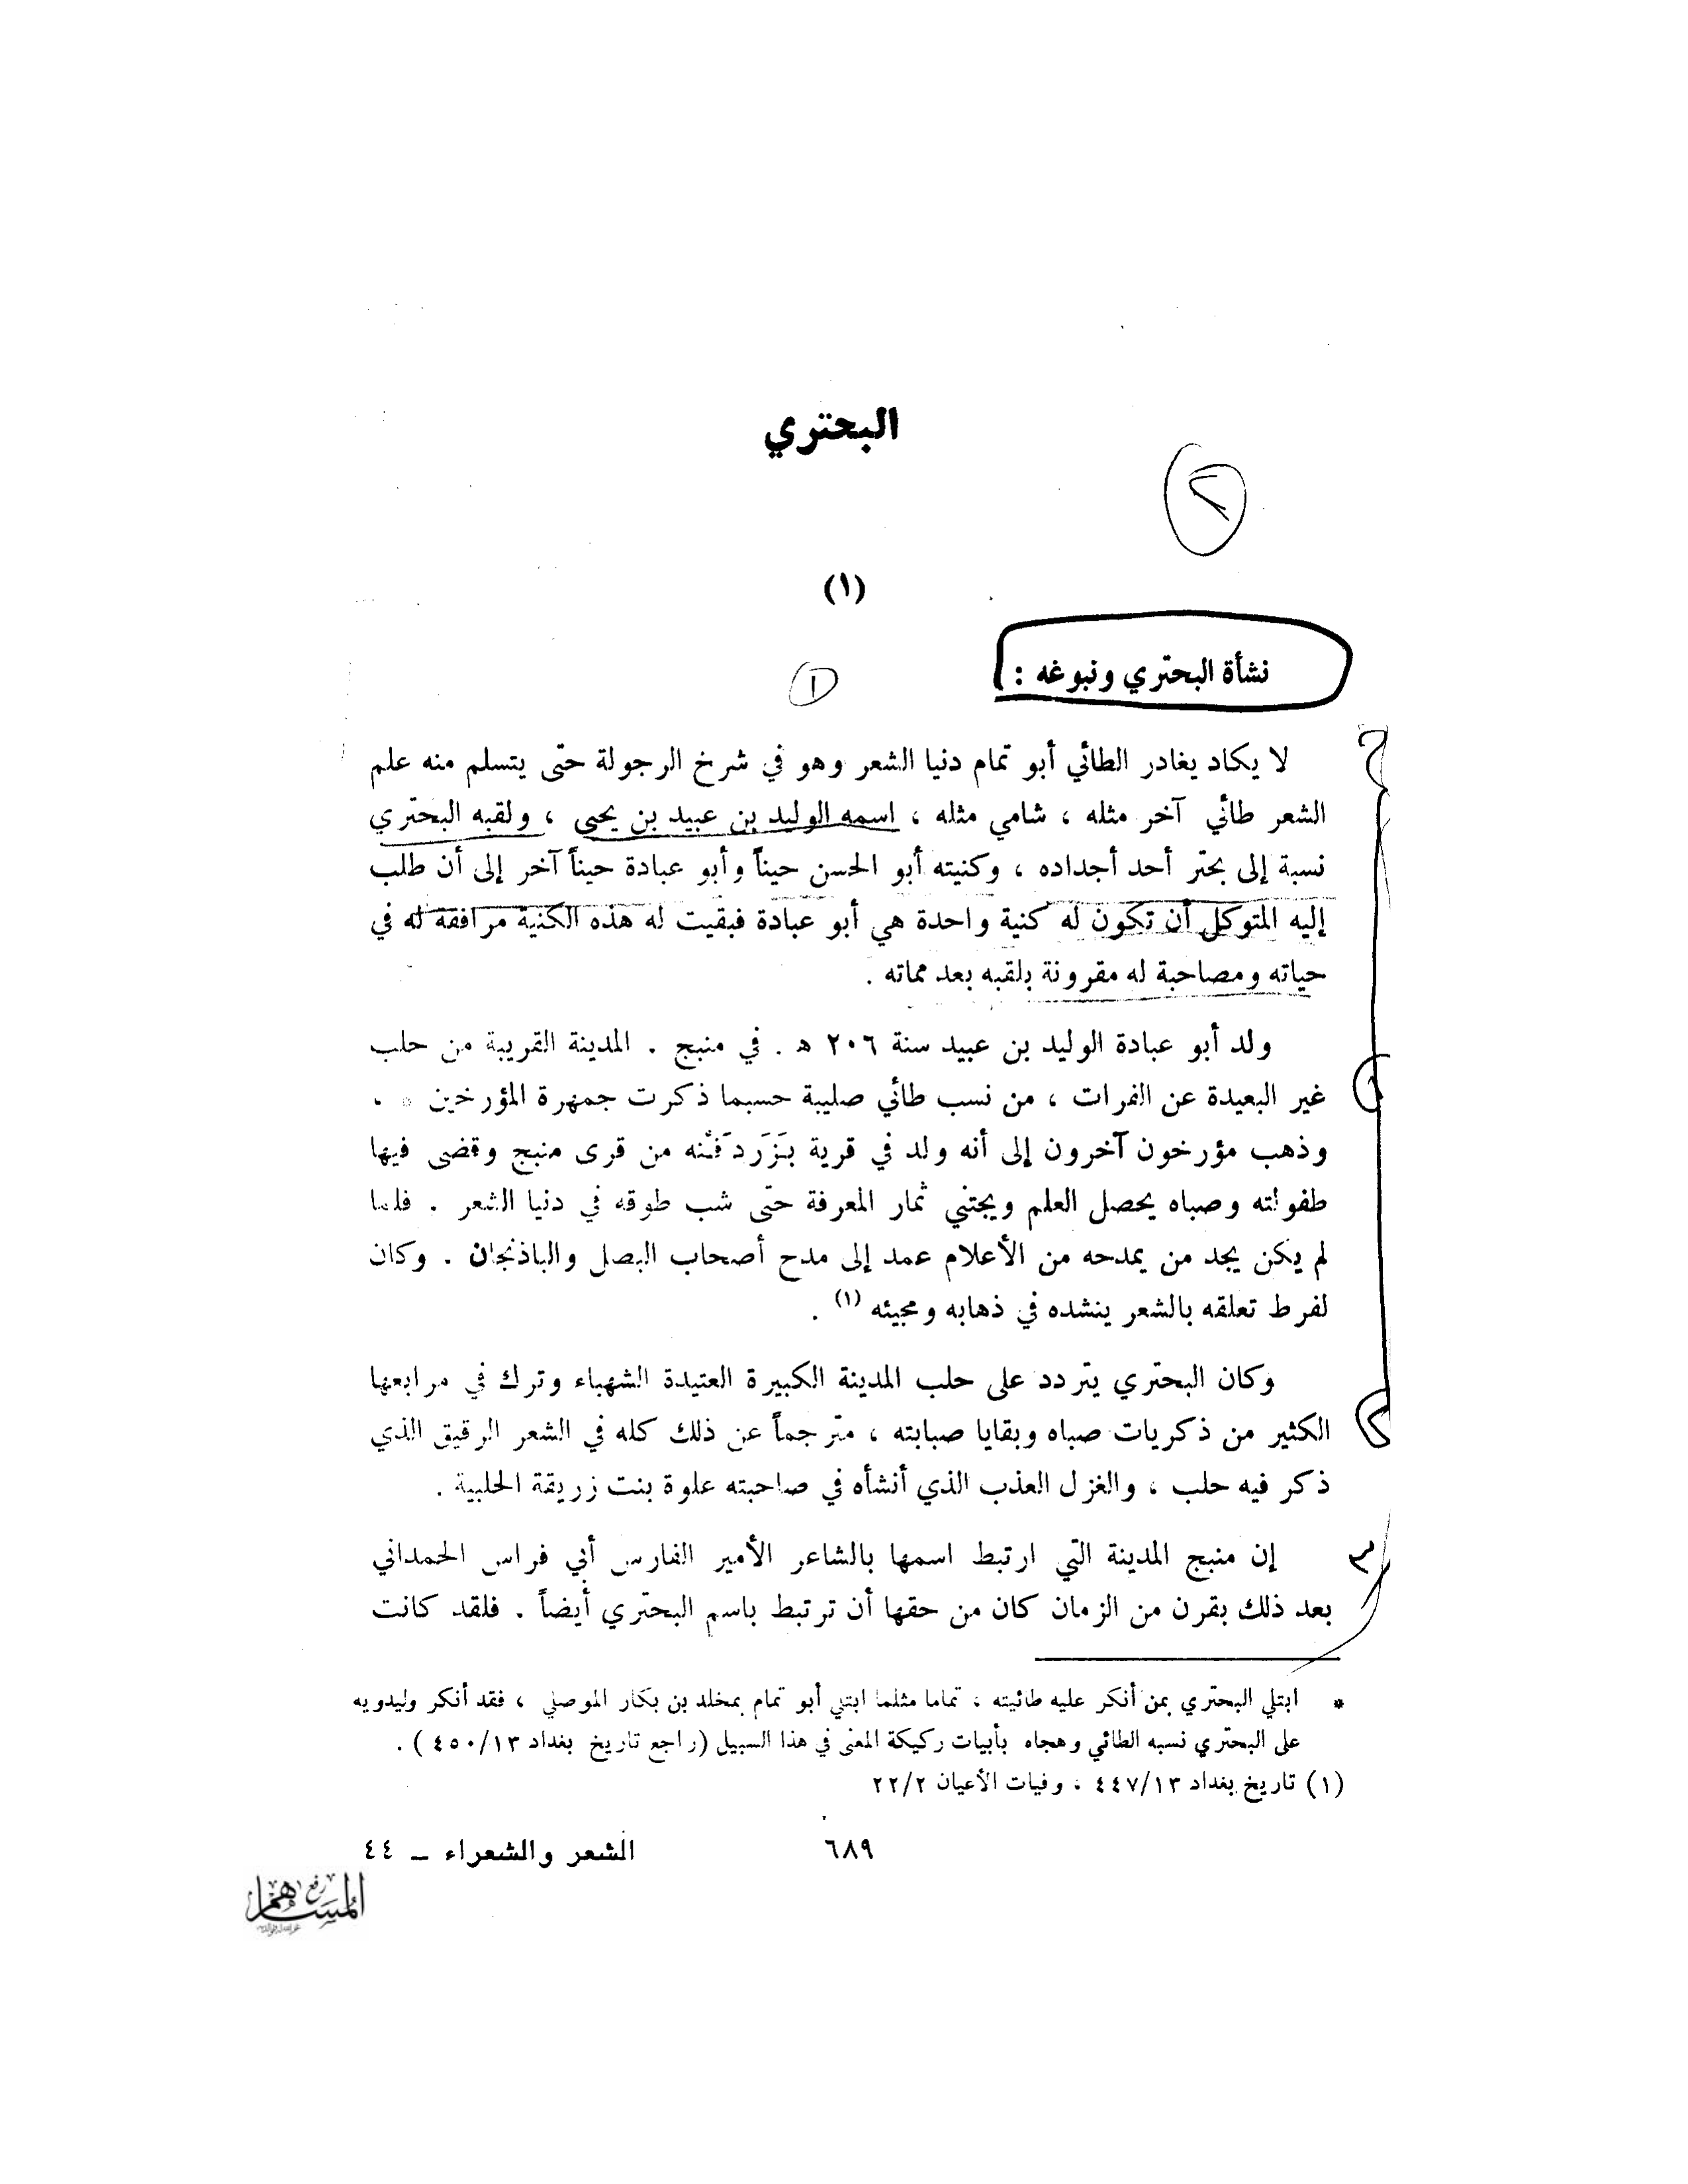 البحتري
٢
(١)
نشأة البحتري ونبوغه :
١
لا يكاد يغادر الطائي أبو تمام دنيا الشعر وهو في شرخ الرجولة حتى يتسلم منه علم
الشعر طائي آخر مثله ، شامي مثله ، اسمه الوليد بن عبيد بن يحيى ، ولقبه البحتري
نسبة إلى بحتر أحد أجداده ، وكنيته أبو الحسن حيناً وأبو عبادة حيناً آخر إلى أن طلب
إليه المتوكل أن تكون له كنية واحدة هي أبو عبادة فبقيت له هذه الكنية مرافقة له في
حياته ومصاحبة له مقرونة بلقبه بعد مماته .
ولد أبو عبادة الوليد بن عبيد سنة ٢٠٦ ه . في منبج . المدينة القريبة من حلب
غير البعيدة عن الفرات ، من نسب طائي صليبة حسبما ذكرت جمهرة المؤرخين * .
وذهب مؤرخون آخرون إلى أنه ولد في قرية بَزَرْدَفْنه من قرى منبج وقضى فيها
طفولته وصباه يحصل العلم ويجتني ثمار المعرفة حتى شب طوقه في دنيا الشعر . فلما
لم يكن يجد من يمدحه من الأعلام عمد إلى مدح أصحاب البصل والباذنجان . وكان
لفرط تعلقه بالشعر ينشده في ذهابه ومجيئه (١) .
وكان البحتري يتردد على حلب المدينة الكبيرة العتيدة الشهباء وترك في مرابعها
الكثير من ذكريات صباه وبقايا صبابته ، مترجماً عن ذلك كله في الشعر الرقيق الذي
ذكر فيه حلب ، والغزل العذب الذي أنشأه في صاحبته علوة بنت زريقة الحلبية .
٣
إن منبج المدينة التي ارتبط اسمها بالشاعر الأمير الفارس أبي فراس الحمداني
بعد ذلك بقرن من الزمان كان من حقها أن ترتبط باسم البحتري أيضاً . فلقد كانت
* ابتلي البحتري بمن أنكر عليه طائيته ، تماما مثلما ابتلي أبو تمام بمخلد بن بكار الموصلي ، فقد أنكر وليدويه
على البحتري نسبه الطائي وهجاه بأبيات ركيكة المعنى في هذا السبيل (راجع تاريخ بغداد ٤٥٠/١٣ ) .
(١) تاريخ بغداد ٤٤٧/١٣ ، وفيات الأعيان ٢٢/٢
٦٨٩
الشعر والشعراء – ٤٤